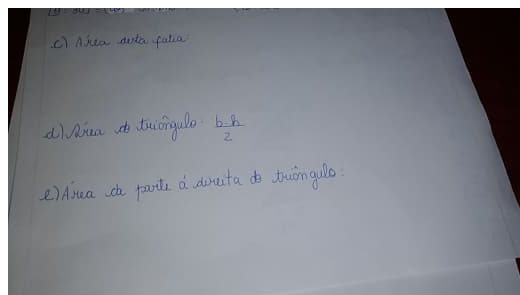 c) Área desta fatia:
d) Área do triângulo: b.h
2
e) Área da parte á direita do triângulo: